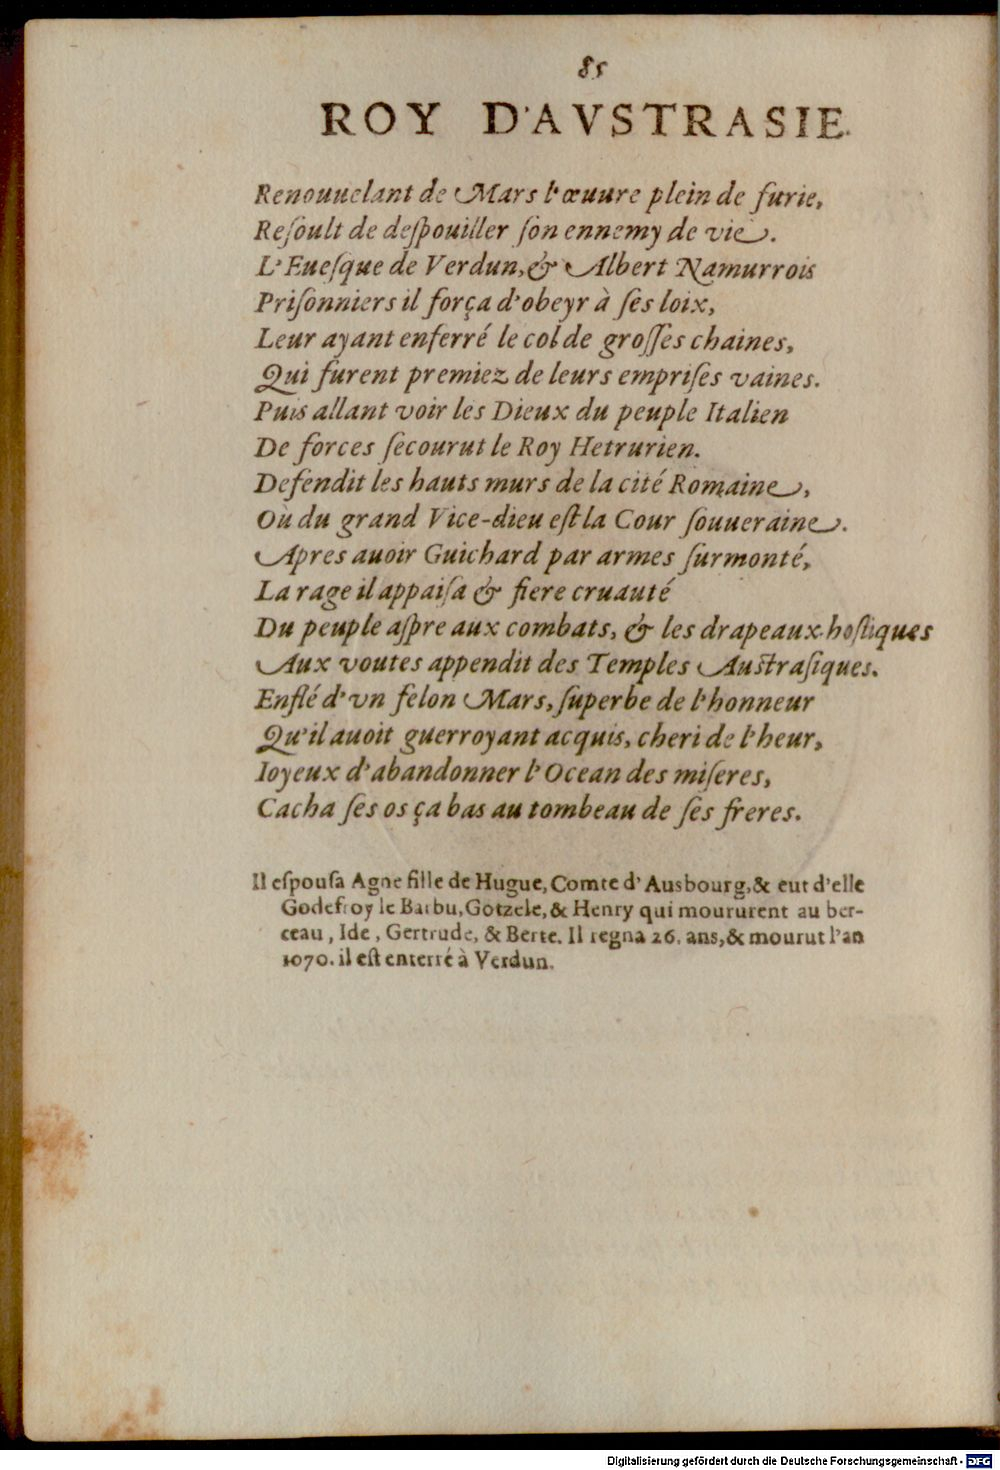 85
ROY D'AVSTRASIE.
Renouuelant de Mars l'œuure plein de furie,
Reſoult de deſpouiller ſon ennemy de vie.
L'Eueſque de Verdun, & Albert Namurrois
Priſonniers il força d'obeyr à ſes loix,
Leur ayant enferré le col de groſſes chaines,
Qui furent premiez de leurs empriſes vaines.
Puis allant voir les Dieux du peuple Italien
De forces ſecourut le Roy Hetrurien.
Defendit les hauts murs de la cité Romaine,
Où du grand Vice-dieu eſt la Cour ſouueraine.
Apres auoir Guichard par armes ſurmonté,
La rage il appaiſa & fiere cruauté
Du peuple aſpre aux combats, & les drapeaux hoſtiques
Aux voutes appendit des Temples Auſtraſiques.
Enflé d'vn felon Mars, ſuperbe de l'honneur
Qu'il auoit guerroyant acquis, cheri de l'heur,
Ioyeux d'abandonner l'Ocean des miſeres,
Cacha ſes os ça bas au tombeau de ſes freres.
Il eſpouſa Agne fille de Hugue, Comte d'Ausbourg, & eut d'elle
Godefroy le Barbu, Gotzele, & Henry qui moururent au ber-
ceau, Ide, Gertrude, & Berte. Il regna 26. ans, & mourut l'an
1070. il eſt enterré à Verdun.
Digitalisierung gefördert durch die Deutsche Forschungsgemeinschaft - DFG